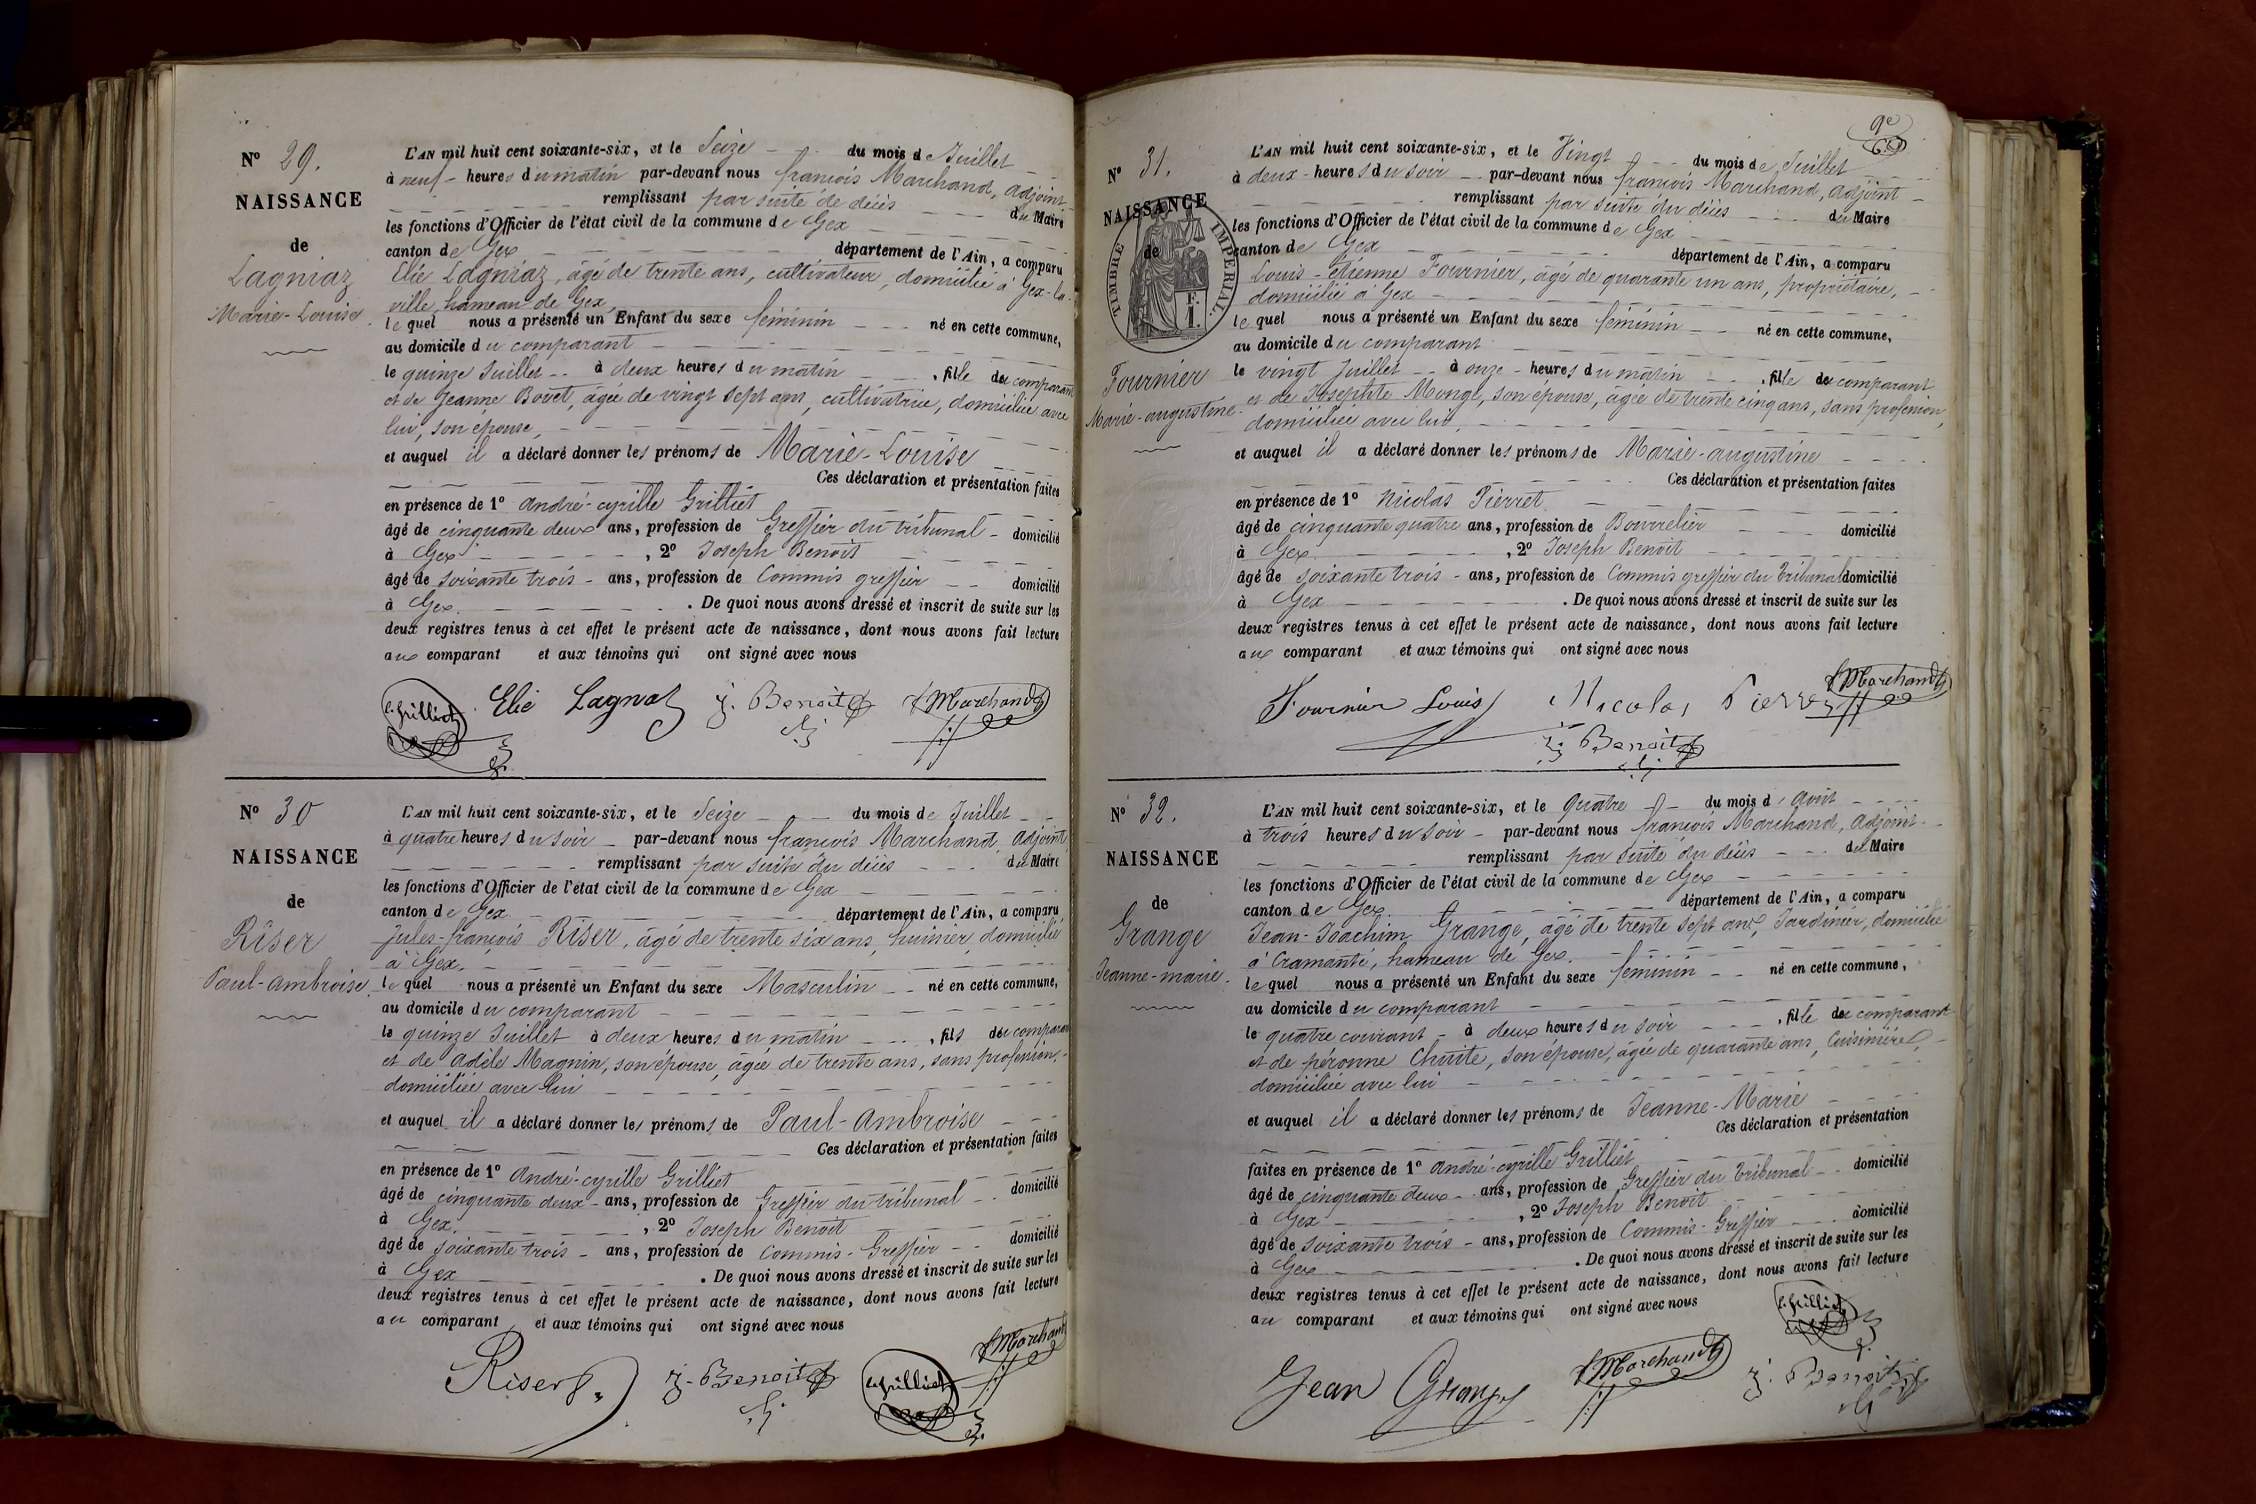 N° 29.
NAISSANCE
de
Lagniaz
Marie-Louise.
L'AN mil huit cent soixante-six, et le Seize du mois de Juillet
à neuf heures du matin par-devant nous françois Marchand, adjoint
remplissant par suite de décès du Maire
les fonctions d'Officier de l'état civil de la commune de Gex
canton de Gex département de l'Ain, a comparu
Elie Lagniaz, âgé de trente ans, cultivateur, domicilié à Gex-la-
ville, hameau de Gex,
lequel nous a présenté un Enfant du sexe féminin né en cette commune,
au domicile du comparant
le quinze Juillet à deux heures du matin, fille du comparant
et de Jeanne Bovet, âgée de vingt sept ans, cultivatrice, domiciliée avec
lui, son épouse,
et auquel il a déclaré donner les prénoms de Marie-Louise
Ces déclaration et présentation faites
en présence de 1° André-cyrille Grilliet
âgé de cinquante deux ans, profession de Greffier du tribunal domicilié
à Gex, 2° Joseph Benoit
âgé de soixante trois ans, profession de Commis greffier domicilié
à Gex. De quoi nous avons dressé et inscrit de suite sur les
deux registres tenus à cet effet le présent acte de naissance, dont nous avons fait lecture
aux comparant et aux témoins qui ont signé avec nous
C. Grilliet Elie Lagnaz J. Benoit f Marchand
N° 30
NAISSANCE
de
Riser
Paul-ambroise.
L'AN mil huit cent soixante-six, et le Seize du mois de Juillet
à quatre heures du soir par-devant nous françois Marchand, adjoint
remplissant par suite du décès du Maire
les fonctions d'Officier de l'état civil de la commune de Gex
canton de Gex département de l'Ain, a comparu
Jules-françois Riser, âgé de trente six ans, huissier, domicilié
à Gex.
lequel nous a présenté un Enfant du sexe Masculin né en cette commune,
au domicile du comparant
le quinze Juillet à deux heures du matin, fils du comparant
et de Adèle Magnin, son épouse, âgée de trente ans, sans profession,
domiciliée avec lui
et auquel il a déclaré donner les prénoms de Paul-Ambroise
Ces déclaration et présentation faites
en présence de 1° André-cyrille Grilliet
âgé de cinquante deux ans, profession de Greffier du tribunal domicilié
à Gex, 2° Joseph Benoit
âgé de soixante trois ans, profession de Commis-Greffier domicilié
à Gex. De quoi nous avons dressé et inscrit de suite sur les
deux registres tenus à cet effet le présent acte de naissance, dont nous avons fait lecture
au comparant et aux témoins qui ont signé avec nous
Riser J. Benoit C. Grilliet f Marchand
9e
N° 31.
NAISSANCE
de
TIMBRE IMPERIAL.
Fournier
Marie-augustine.
L'AN mil huit cent soixante-six, et le Vingt du mois de Juillet
à deux heures du soir par-devant nous françois Marchand, adjoint
remplissant par suite du décès du Maire
les fonctions d'Officier de l'état civil de la commune de Gex
canton de Gex département de l'Ain, a comparu
Louis-Etienne Fournier, âgé de quarante un ans, propriétaire,
domicilié à Gex
lequel nous a présenté un Enfant du sexe féminin né en cette commune,
au domicile du comparant
le vingt Juillet à onze heures du matin, fille du comparant
et de Josephte Monge, son épouse, âgée de trente cinq ans, sans profession,
domiciliée avec lui,
et auquel il a déclaré donner les prénoms de Marie-augustine
Ces déclaration et présentation faites
en présence de 1° Nicolas Pierret
âgé de cinquante quatre ans, profession de Bourrelier domicilié
à Gex, 2° Joseph Benoit
âgé de soixante trois ans, profession de Commis greffier du Tribunal domicilié
à Gex. De quoi nous avons dressé et inscrit de suite sur les
deux registres tenus à cet effet le présent acte de naissance, dont nous avons fait lecture
aux comparant et aux témoins qui ont signé avec nous
Fournier Louis Nicolas Pierret f Marchand
J. Benoit
N° 32.
NAISSANCE
de
Grange
Jeanne-marie.
L'AN mil huit cent soixante-six, et le quatre du mois d'Août
à trois heures du soir par-devant nous françois Marchand, adjoint
remplissant par suite du décès du Maire
les fonctions d'Officier de l'état civil de la commune de Gex
canton de Gex département de l'Ain, a comparu
Jean-Joachim Grange, âgé de trente sept ans, Jardinier, domicilié
à Cramante, hameau de Gex.
lequel nous a présenté un Enfant du sexe féminin né en cette commune,
au domicile du comparant
le quatre courant à deux heures du soir, fille du comparant
et de péronne Chuite, son épouse, âgée de quarante ans, Cuisinière,
domiciliée avec lui
et auquel il a déclaré donner les prénoms de Jeanne-Marie
Ces déclaration et présentation
faites en présence de 1° André-cyrille Grilliet
âgé de cinquante deux ans, profession de Greffier du Tribunal domicilié
à Gex, 2° Joseph Benoit
âgé de soixante trois ans, profession de Commis-Greffier domicilié
à Gex. De quoi nous avons dressé et inscrit de suite sur les
deux registres tenus à cet effet le présent acte de naissance, dont nous avons fait lecture
au comparant et aux témoins qui ont signé avec nous
C. Grilliet
Jean Grange f Marchand J. Benoit